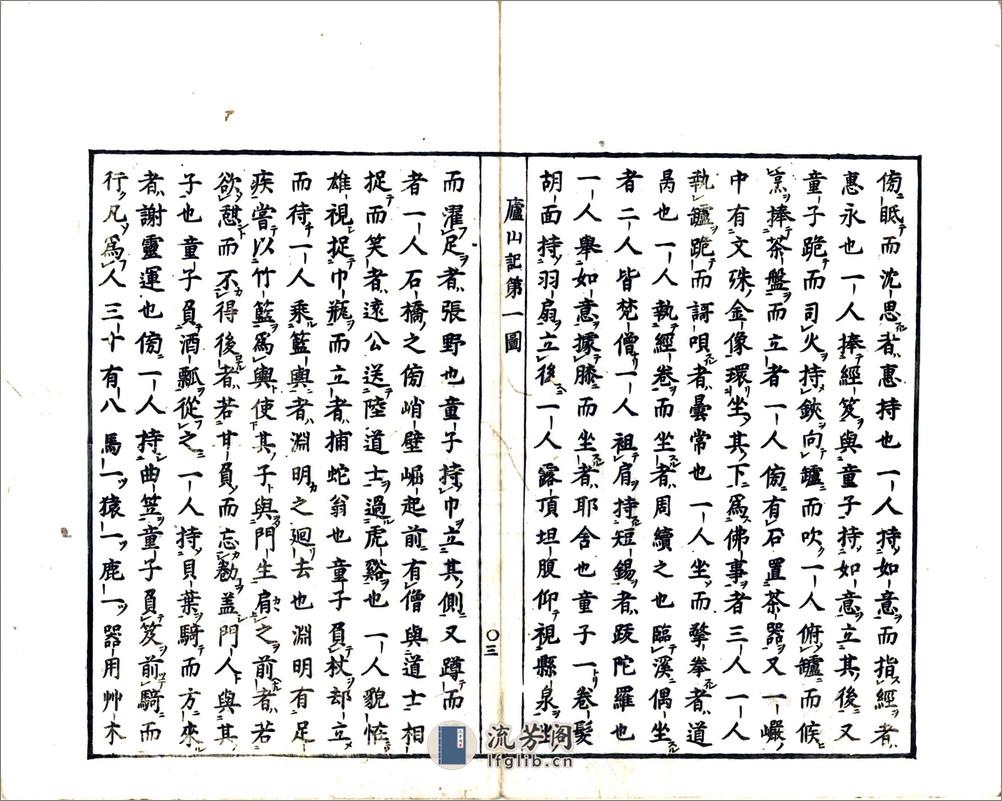 傍眡而沈思者惠持也一人持如意而指經者
惠永也一人捧經笈與童子持如意立其後又
童子跪而司火持鋏向鑪而吹一人俯鑪而候
烹捧茶盤而立者一人傍有石置茶器又一巖
中有文殊金像環坐其下爲佛事者三人一人
執鑪跪而謌唄者曇常也一人坐而擎拳者道
昺也一人執經卷而坐者周續之也臨溪偶坐
者二人皆梵僧一人袒肩持短錫者跋陀羅也
一人舉如意據膝而坐者耶舍也童子一卷髮
胡面持羽扇立後一人露頂坦腹仰視縣泉坐
廬山記第一圖
〇三
而濯足者張野也童子持巾立其側又蹲而
者一人石橋之傍峭壁崛起前有僧與道士相
捉而笑者遠公送陸道士過虎谿也一人貌怪
雄視捉巾瓶而立者捕蛇翁也童子負杖却立
而待一人乘籃輿者淵明之迴去也淵明有足
疾嘗以竹籃爲輿使其子與門生肩之前者若
欲憩而不得後者若甘負而忘勌盖門人與其
子也童子負酒瓢從之一人持貝葉騎而方來
者謝靈運也傍一人持曲笠童子負笈前騎而
行凡爲人三十有八馬一猿一鹿一器用艸木
流芳阁
lfglib.cn